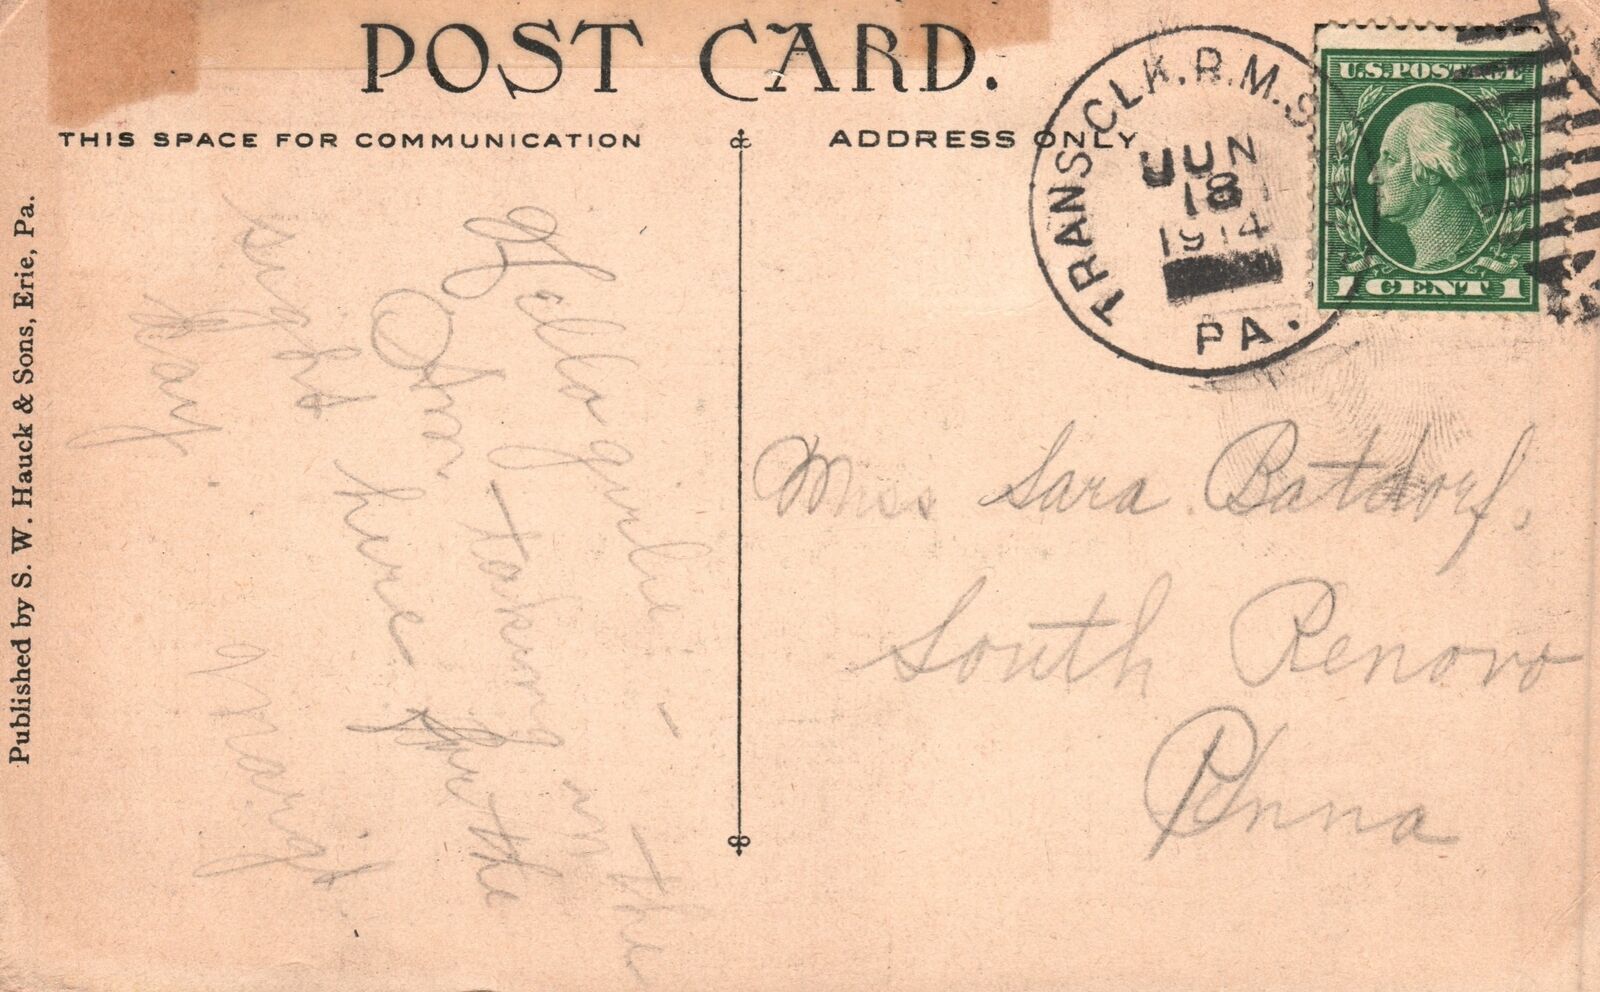 POST CARD.
THIS SPACE FOR COMMUNICATION
ADDRESS ONLY
TRANS. CLK. R.M.S.
JUN
18
1914
PA.
U.S. POSTAGE
1 CENT 1
Published by S. W. Hauck & Sons, Erie, Pa.
Hello girlie -
taking in the
Over for the
sights here
day.
Margt.
Miss Sara Batdorf,
South Renovo
Penna